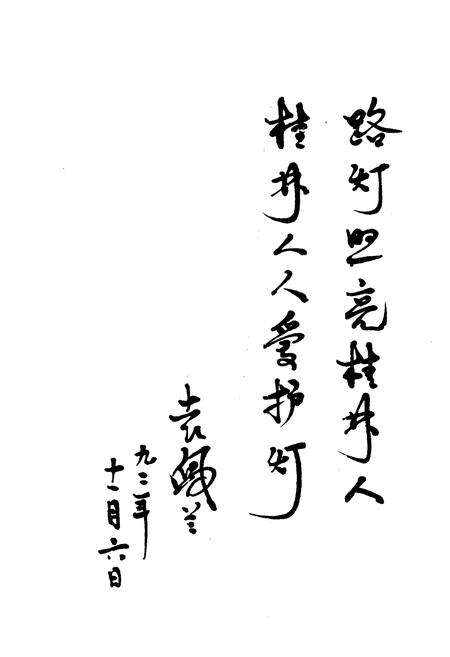 路灯照亮桂林人
桂林人人爱护灯
袁凤兰
九三年
十一月六日